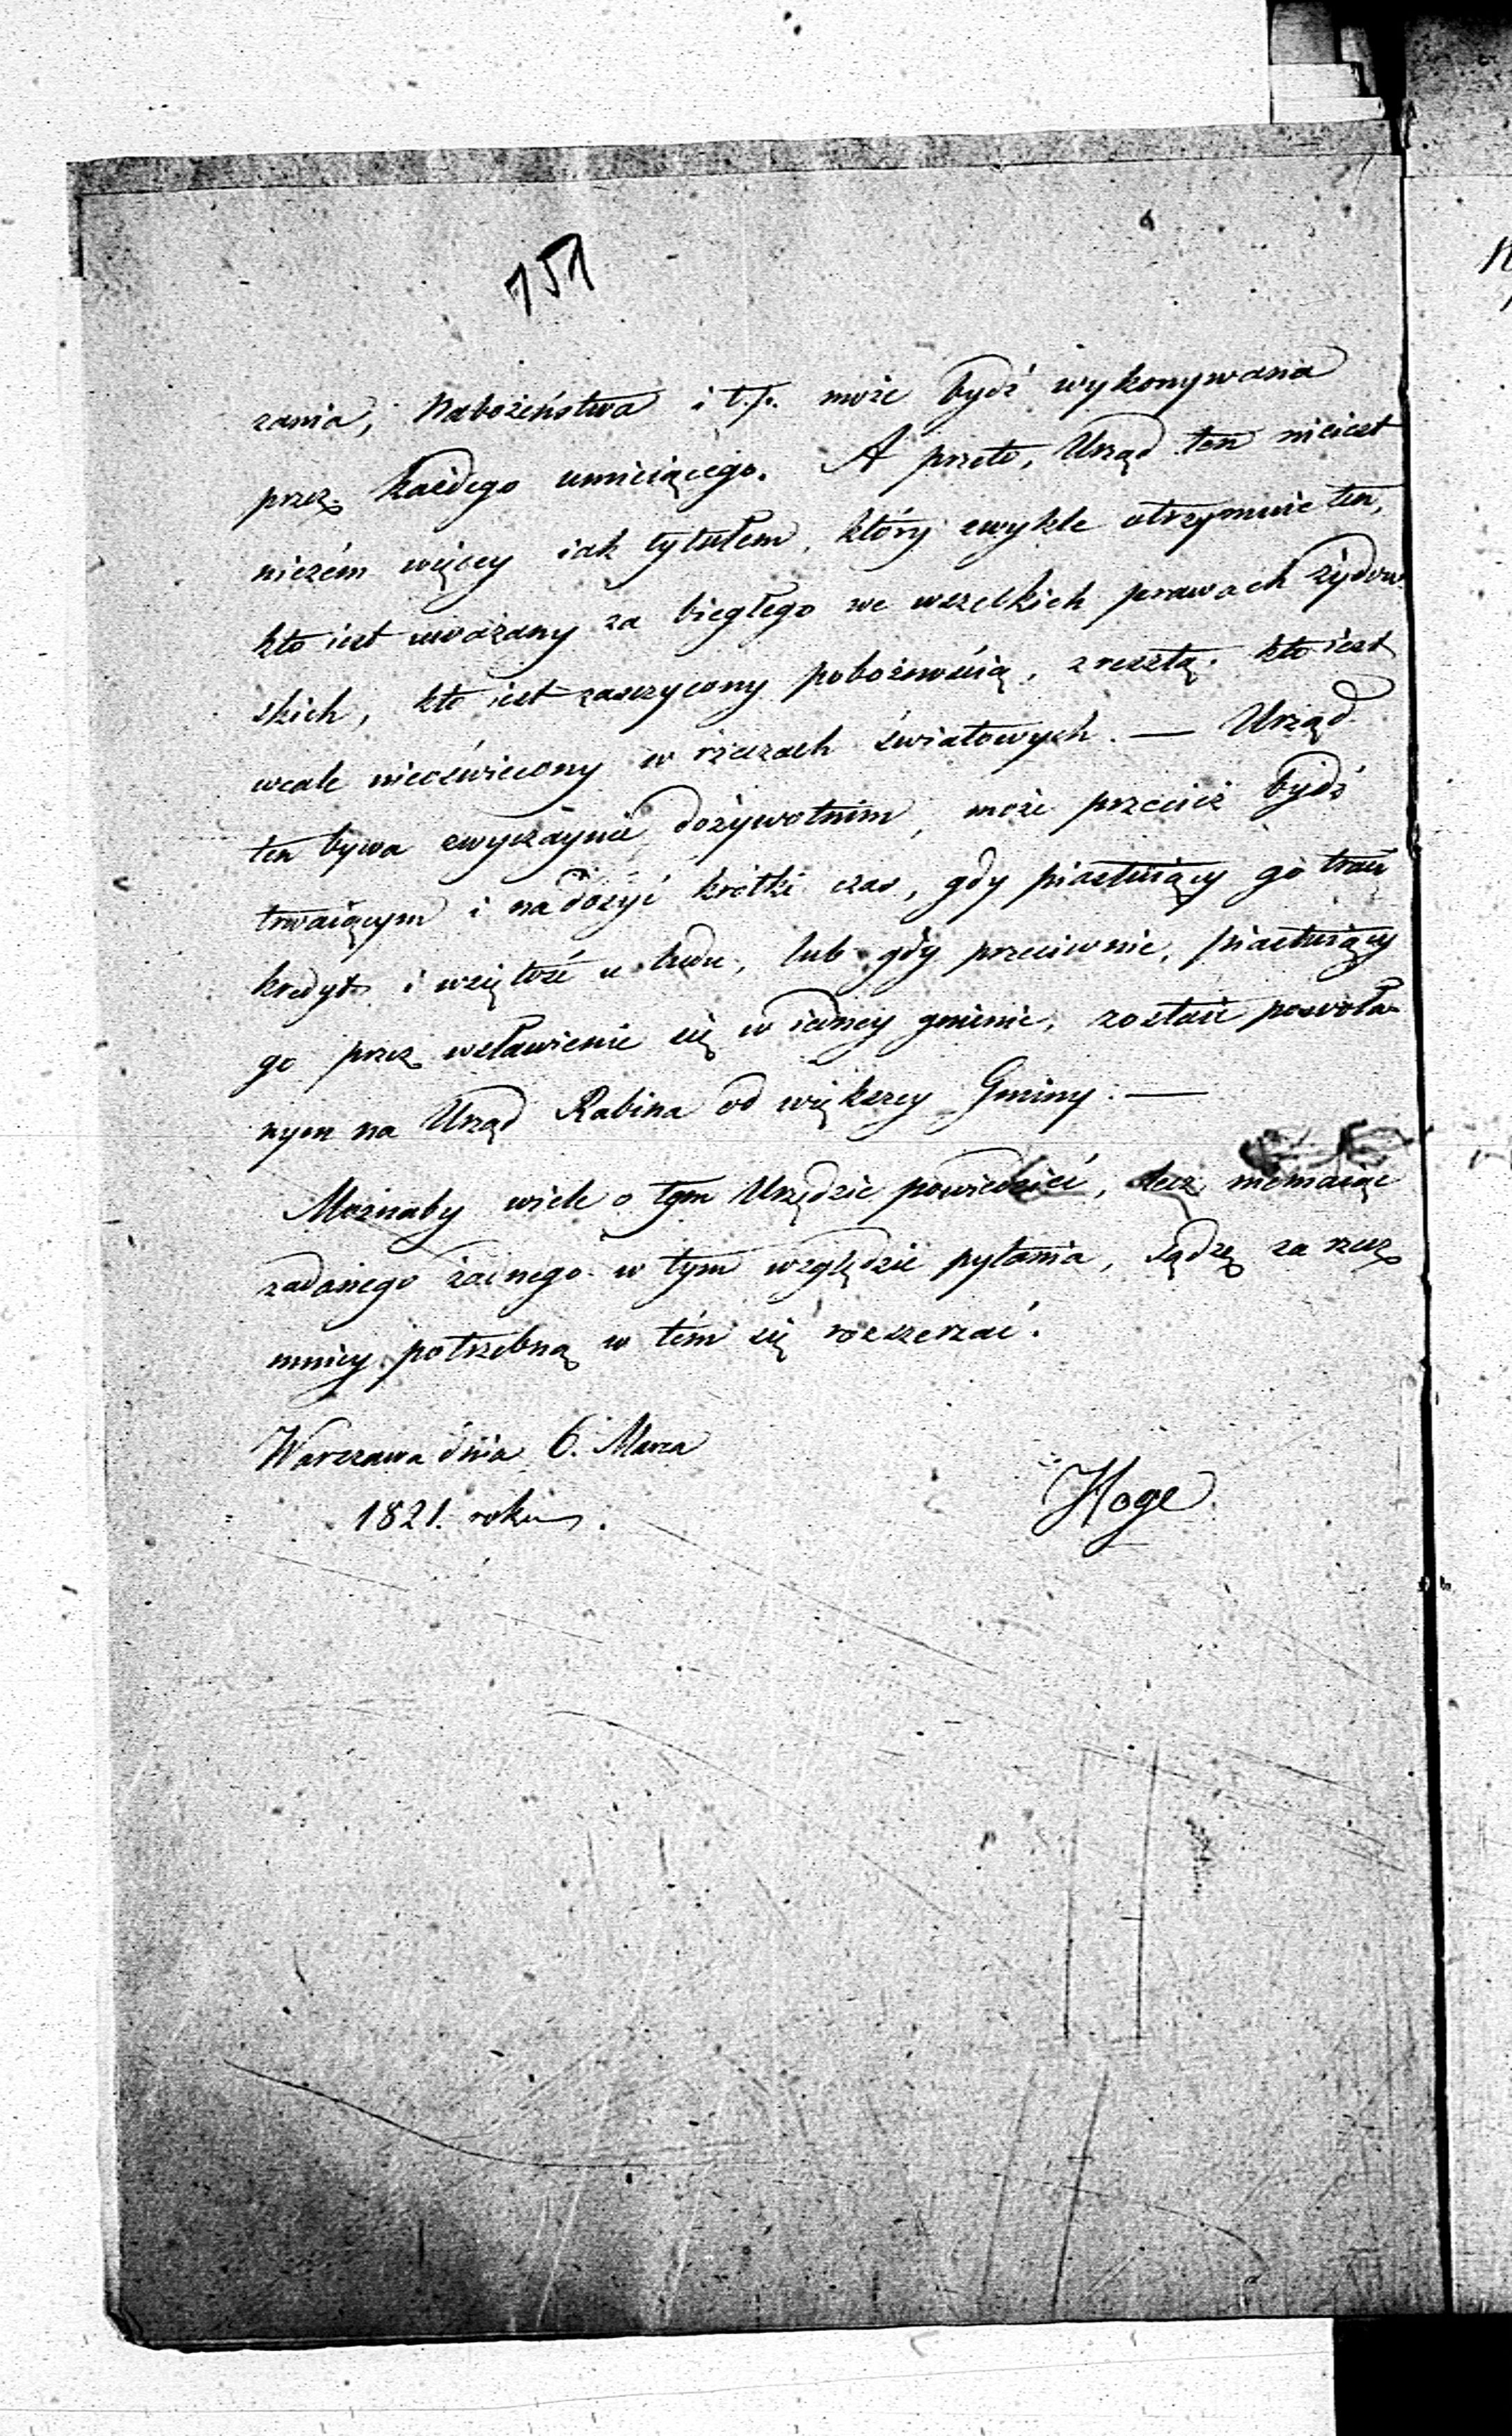 151
zania, Nabożeństwa i t.p. może bydź wykonywana
przez każdego umieiącego. A przeto, Urząd ten nieiest
niczém więcey iak tytułem, który zwykle otrzymuie ten,
kto iest uważany za biegłego we wszelkich prawach żydow-
skich, kto iest zaszczycony pobożnością, zresztą kto iest
wcale nieoświecony w rzeczach światowych. — Urząd
ten bywa zwyczaynie dożywotnim, może przecież bydź
trwaiącym i na dosyć krótki czas, gdy piastuiący go traci
kredyt i wziętość u ludu, lub gdy przeciwnie, piastuiący
go przez wsławienie się w iedney gminie, zostaie powoła-
nym na Urząd Rabina od większey Gminy. —
Możnaby wiele o tym Urzędzie powiedzieć, lecz niemaiąc
zadanego żadnego w tym względzie pytania, sądzę za rzecz
mniey potrzebną w tém się rozszerzać.
Warszawa dnia 6. Marca
1821. roku.
Hoge